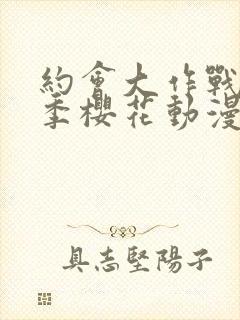 約會大作戰
季櫻花動漫
具志堅陽子